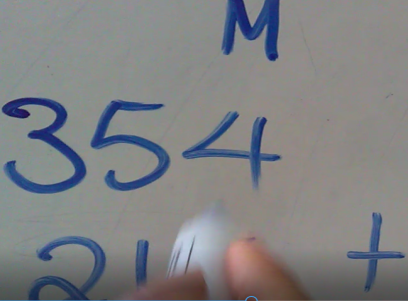 M
354
2 +